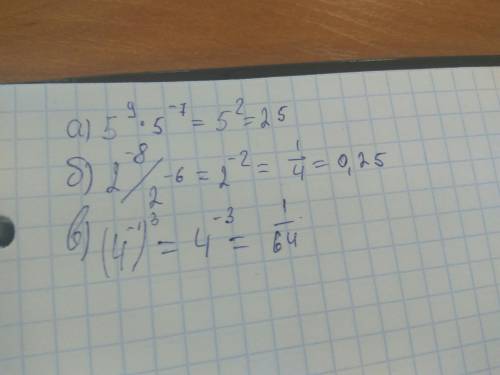 а) 5⁹·5⁻⁷ = 5² = 25
б) 2⁻⁸/2⁻⁶ = 2⁻² = 1/4 = 0,25
в) (4⁻¹)³ = 4⁻³ = 1/64